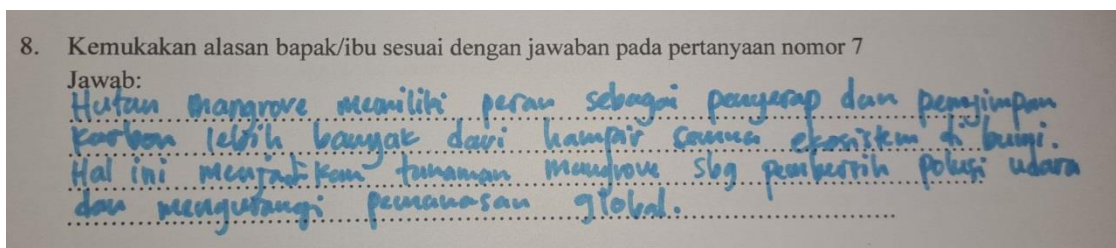 8. Kemukakan alasan bapak/ibu sesuai dengan jawaban pada pertanyaan nomor 7
Jawab:
Hutan mangrove memiliki peran sebagai penyerap dan penyimpan
karbon lebih banyak dari hampir semua ekosistem di bumi.
Hal ini menjadikan tanaman mangrove sbg pembersih polusi udara
dan mengurangi pemanasan global.